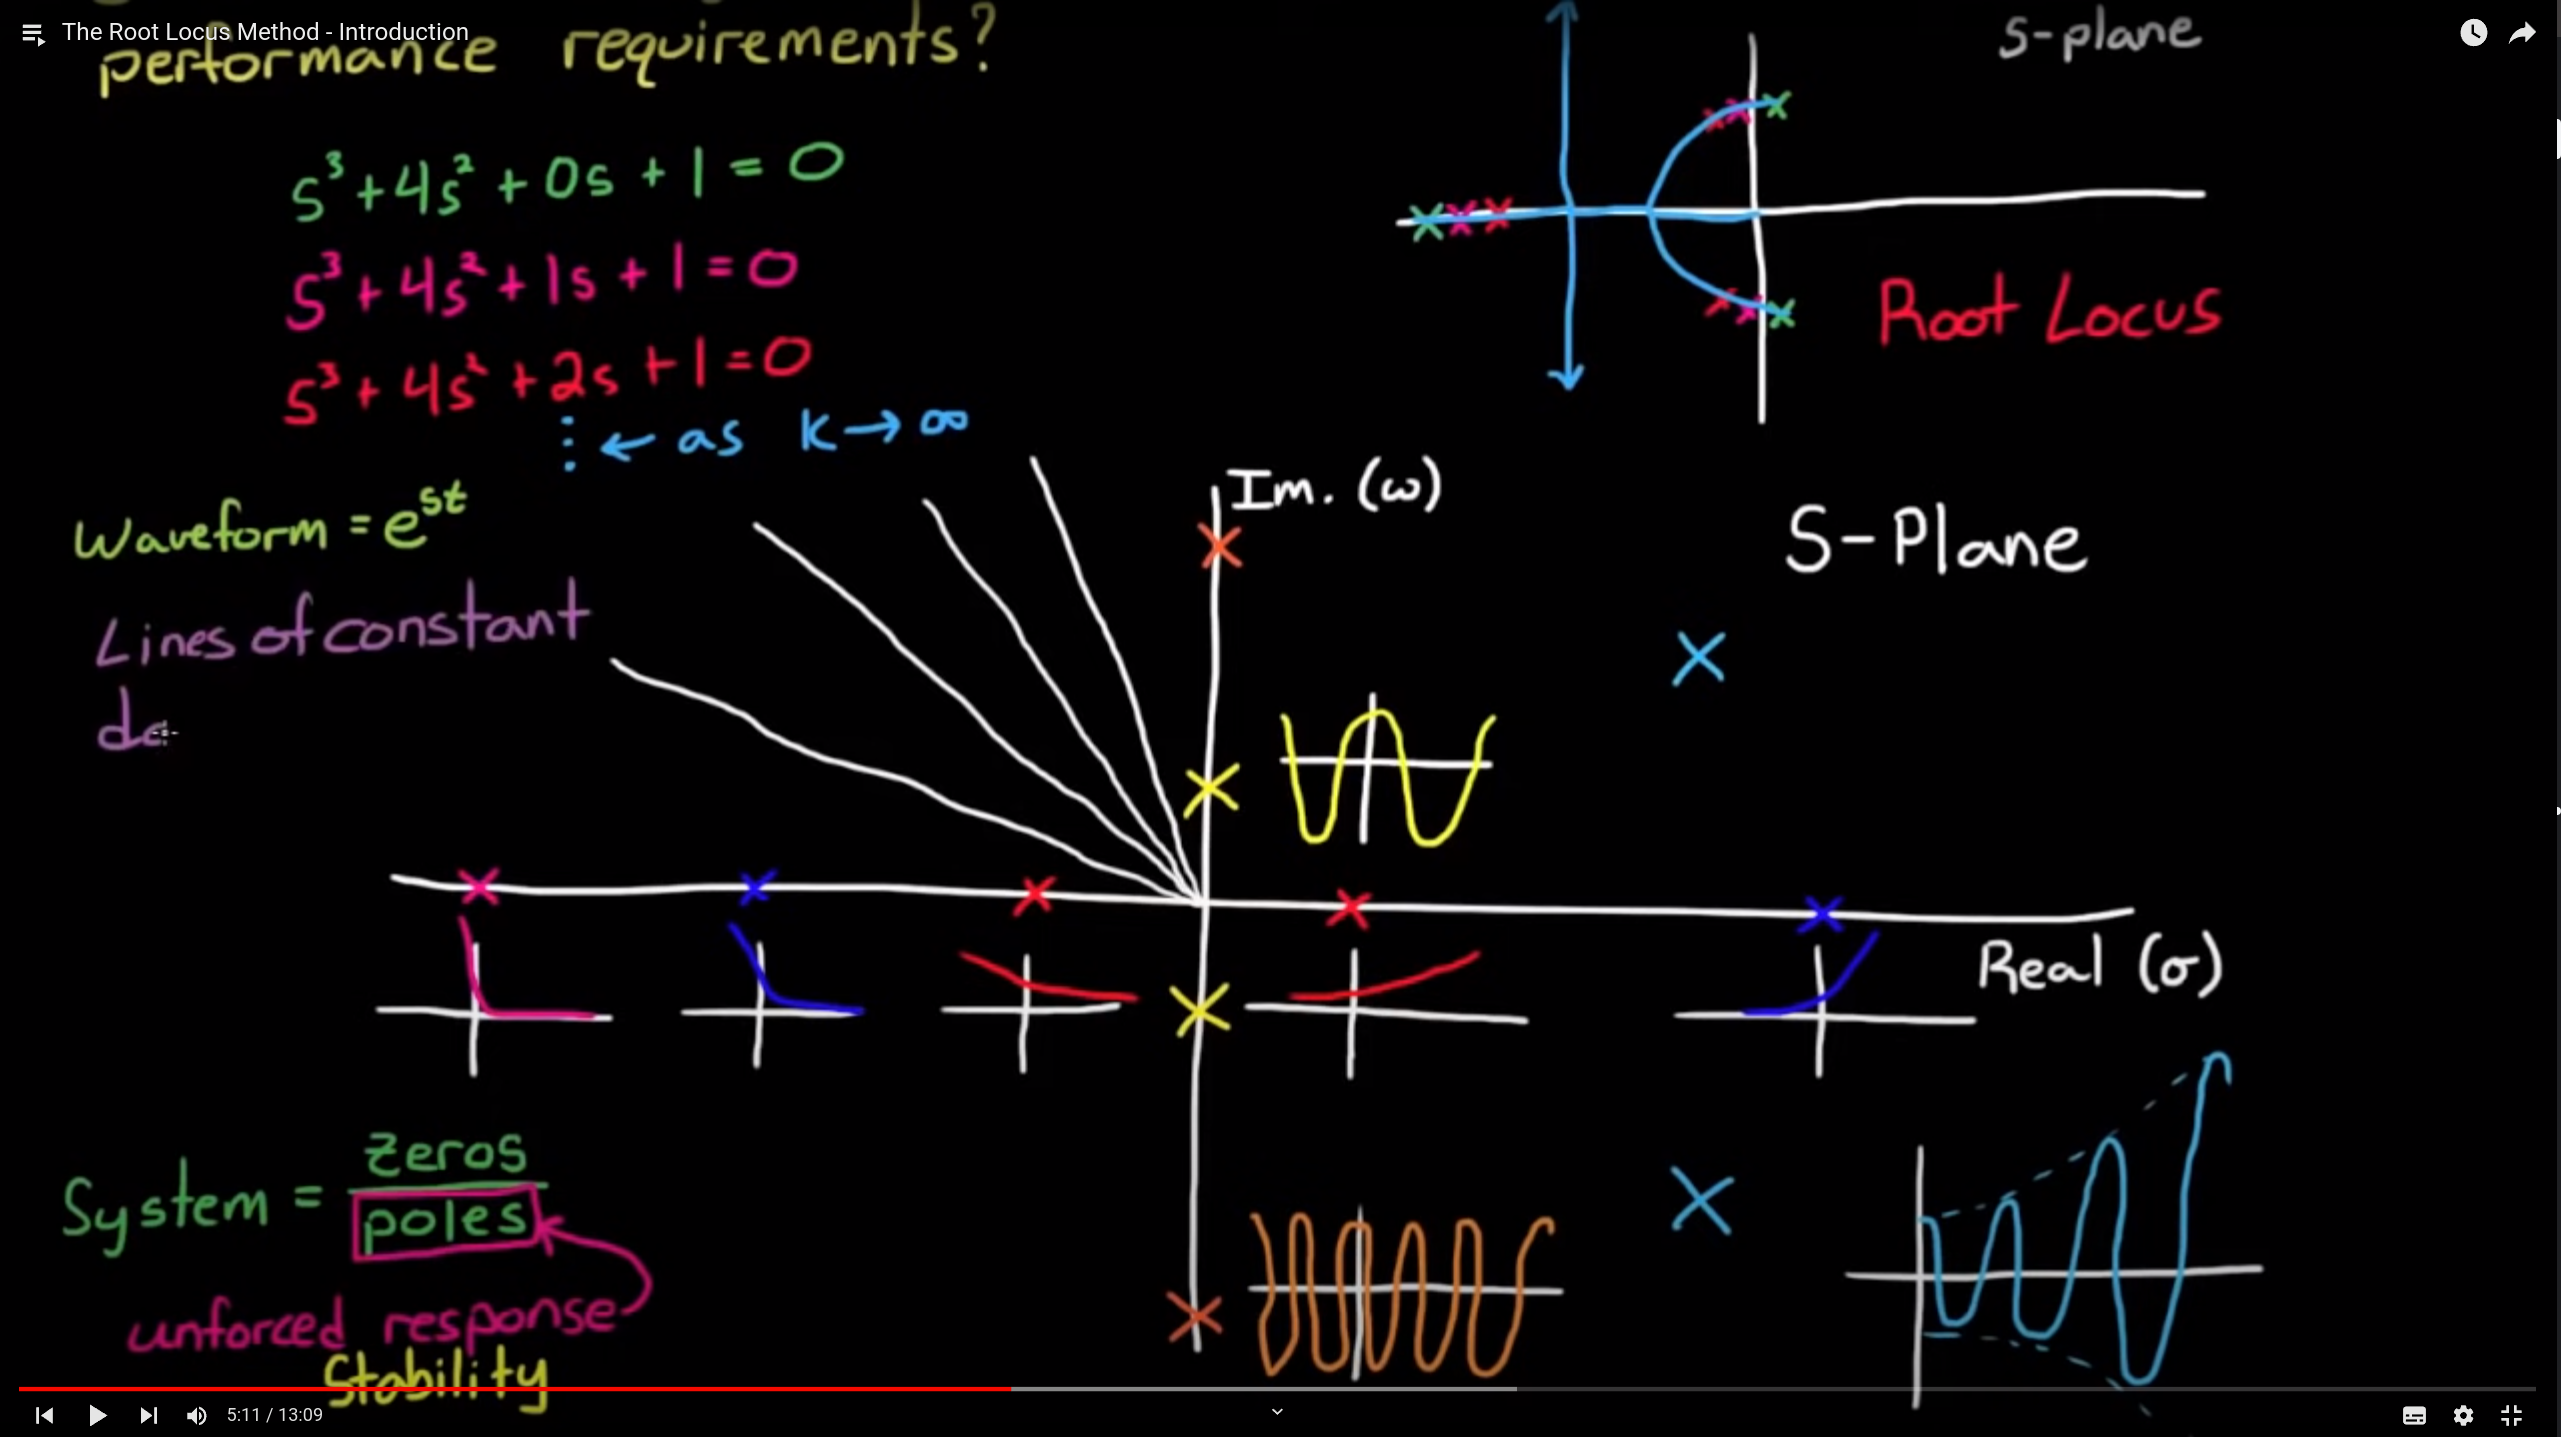 The Root Locus Method - Introduction
performance requirements?
s³ + 4s² + 0s + 1 = 0
s³ + 4s² + 1s + 1 = 0
s³ + 4s² + 2s + 1 = 0
⋮ ← as K → ∞
S-plane
Root Locus
Waveform = e^st
Lines of constant
da
Im. (ω)
S-Plane
Real (σ)
System = zeros
poles
unforced response
Stability
5:11 / 13:09